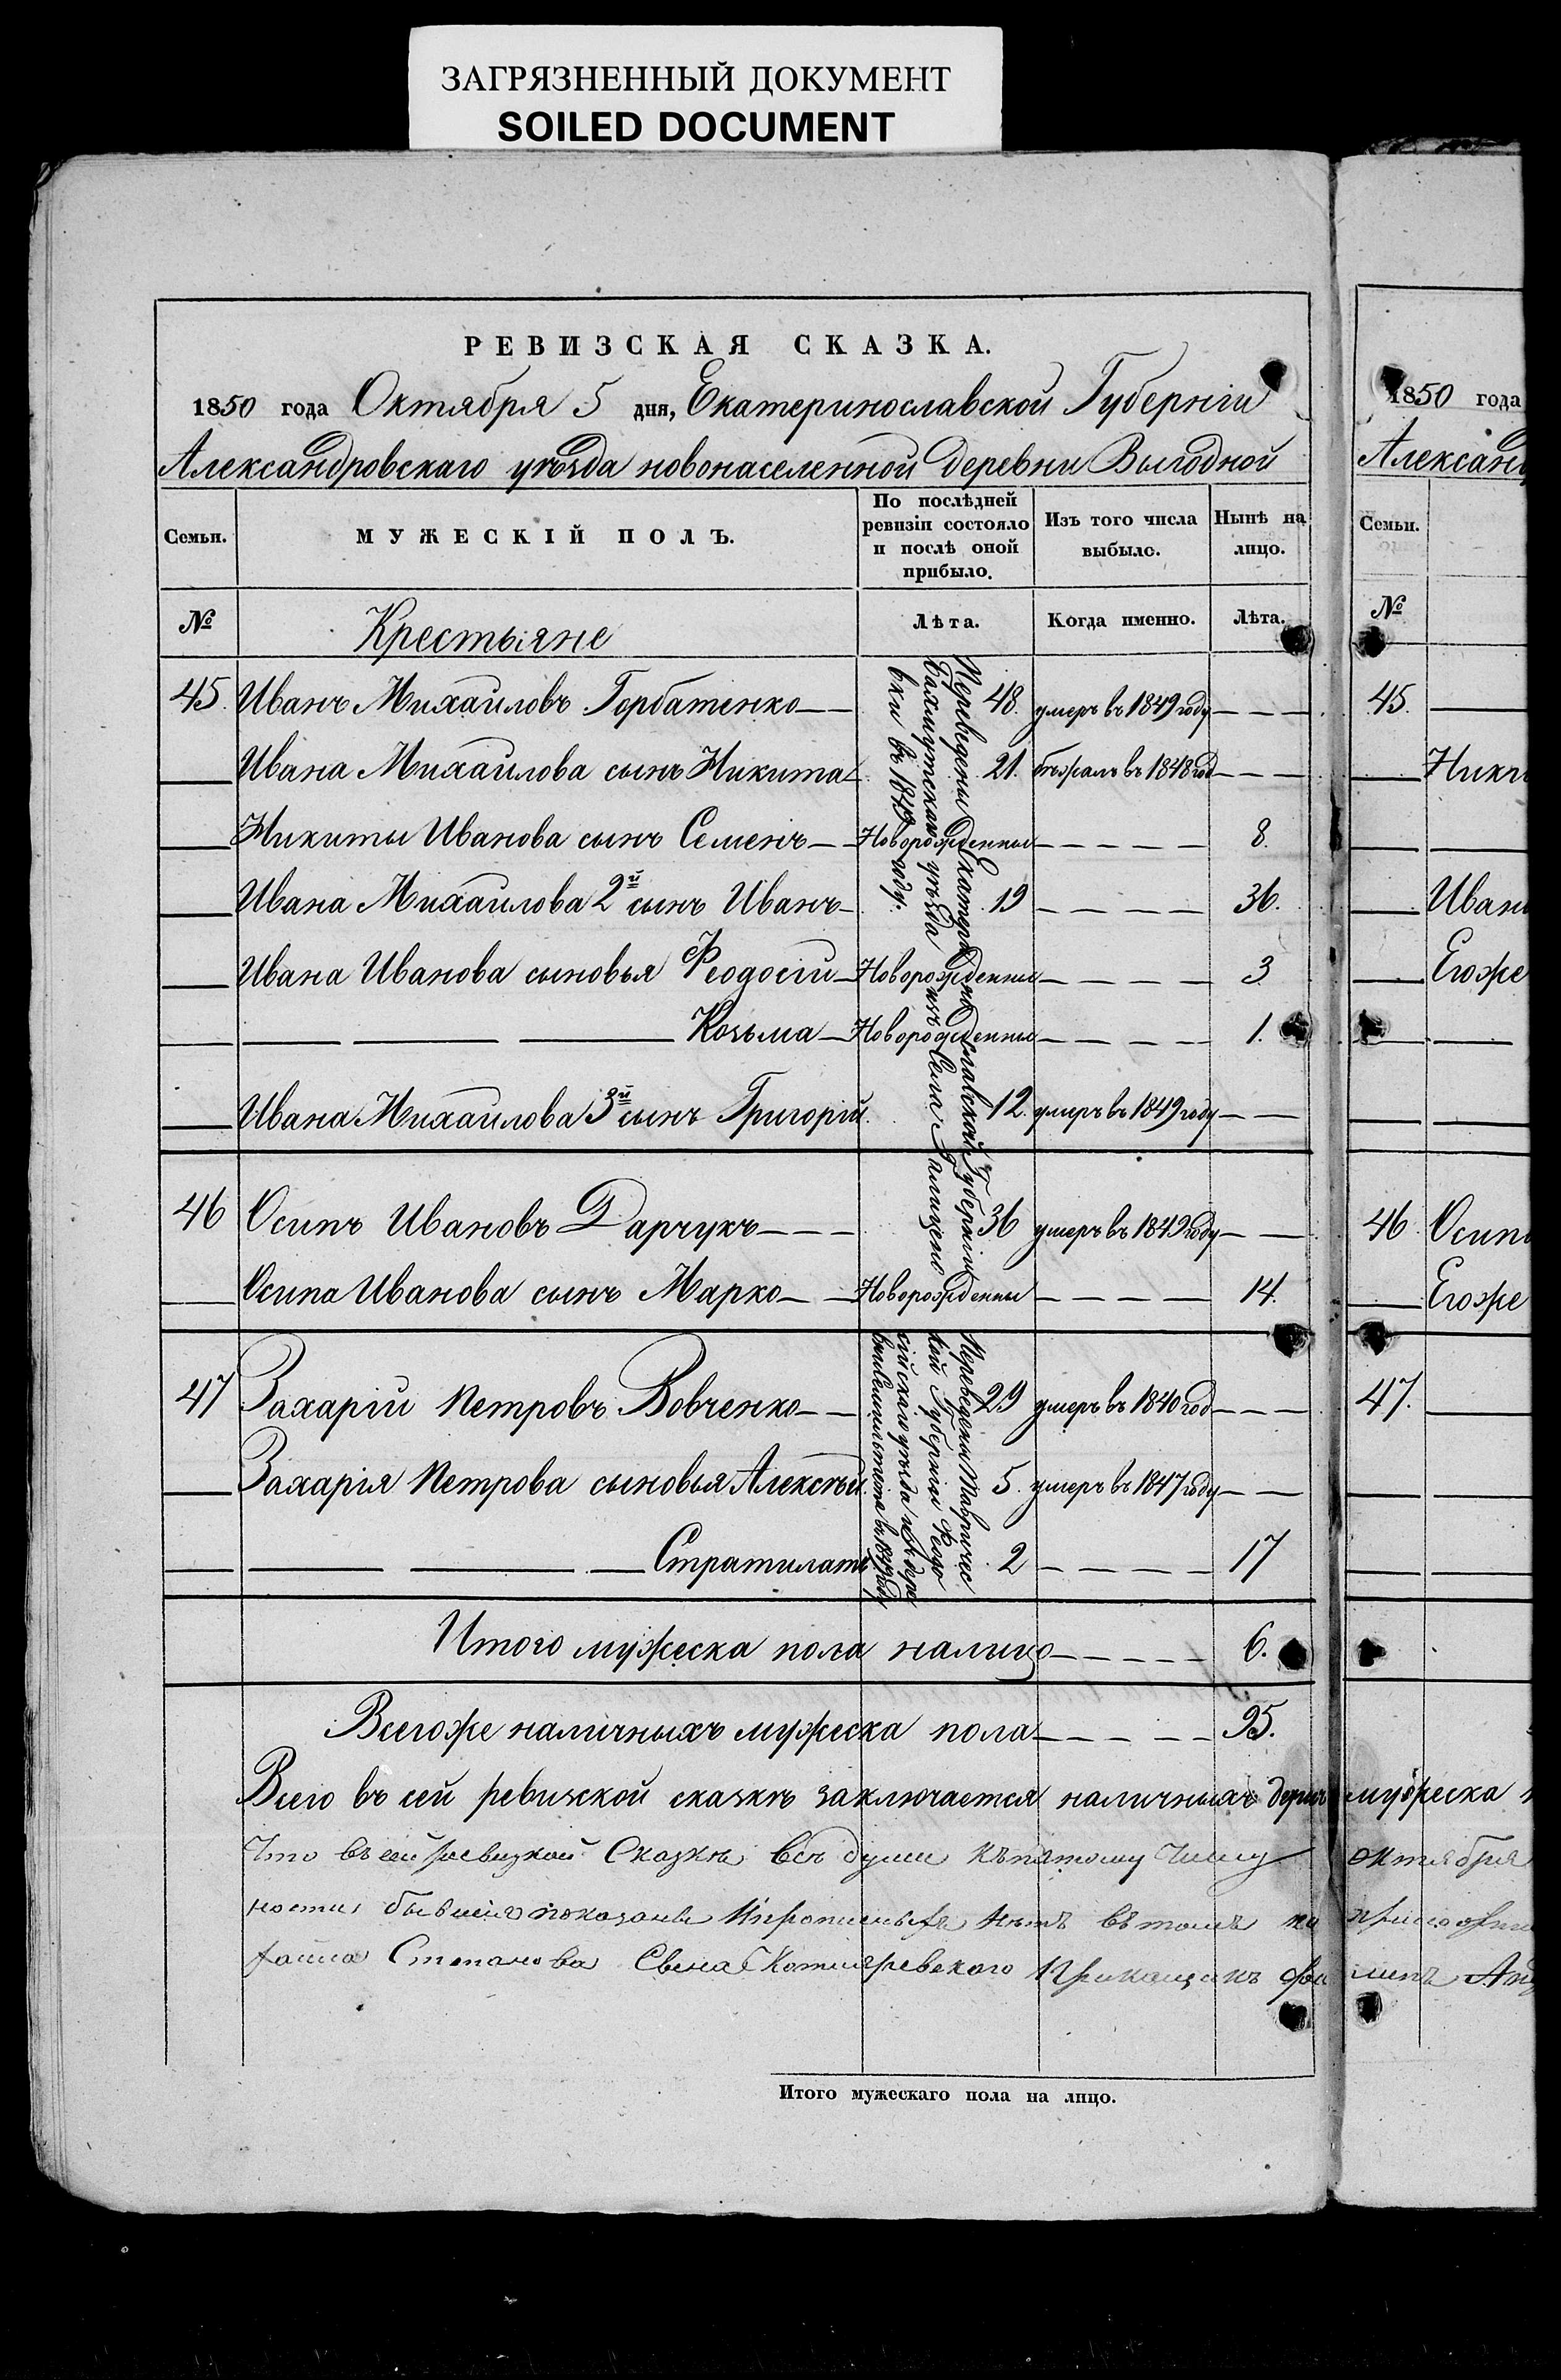 ЗАГРЯЗНЕННЫЙ ДОКУМЕНТ
SOILED DOCUMENT
РЕВИЗСКАЯ СКАЗКА.
1850 года Октября 5 дня, Екатеринославской Губерніи
Александровскаго уѣзда новонаселенной деревни Выгодной
Семьи.
МУЖЕСКІЙ ПОЛЪ.
По послѣдней ревизіи состояло и послѣ оной прибыло.
Изъ того числа выбыло.
Нынѣ на лицо.
№ Крестьяне Лѣта. Когда именно. Лѣта.
45. Иванъ Михайловъ Горбатенко 48. умеръ въ 1849 году
Ивана Михайлова сынъ Никита 21. бѣжалъ въ 1848 год
Никиты Иванова сынъ Семенъ Новорожденный 8.
Ивана Михайлова 2й сынъ Иванъ 19 36.
Ивана Иванова сыновья Феодосій Новорожденный 3
Козьма Новорожденный 1.
Ивана Михайлова 3й сынъ Григорій 12. умеръ въ 1849 году
Переведены Екатеринославской Губерніи
Бахмутскаго уѣзда изъ села
въ 1849 году.
46 Осипъ Ивановъ Дарчукъ 36 умеръ въ 1849 году
Осипа Иванова сынъ Марко Новорожденный 14.
47 Захарій Петровъ Вовченко 29 умеръ въ 1840 год
Захарія Петрова сыновья Алексѣй 5. умеръ въ 1847 году
Стратилатъ 2 17
Переведены Тавричес
кой Губерніи Феодо
сійскаго уѣзда изъ дере
Итого мужеска пола налицо 6.
Всегоже наличныхъ мужеска пола 95.
Всего въ сей ревизской сказкѣ заключается наличныхъ душъ мужеска
Что въ сей ревизкой Сказкѣ всѣ души къ пятому Числу октября
ности бывшія показаны и нѣтъ въ томъ
Степанова Сына Котляревского Прикащикъ
Итого мужескаго пола на лицо.
1850 года
Александ
Семьи.
№
45.
Ники
Иван
Егоже
46. Осип
Егоже
47.